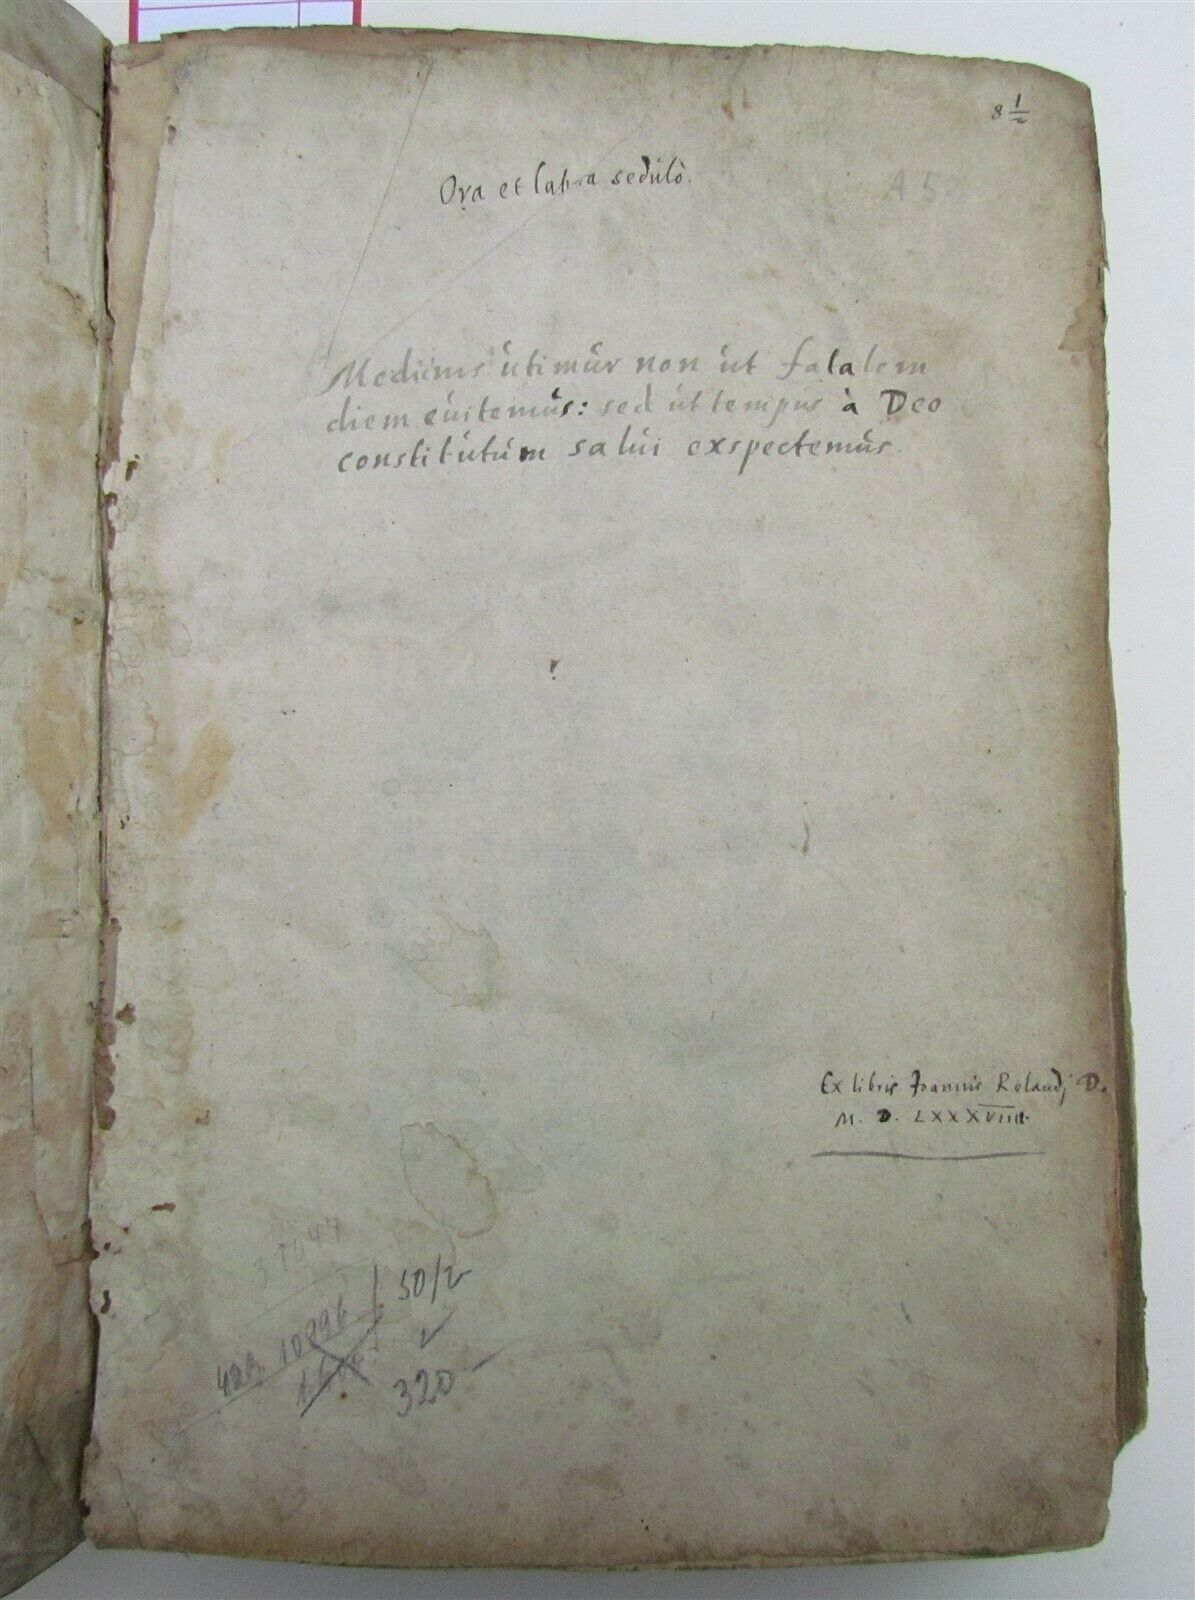 8 1/2
Ora et labora sedulò.
A 5
Medicinis utimur non ut fatalem
diem euitemus: sed ut tempus à Deo
constitutum salui exspectemus.
Ex libris Joannis Rolandj D.
M. D. LXXXVIIII.
50/2
428 10896
320